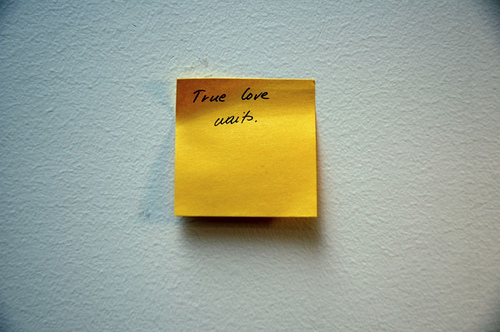 True love
waits.